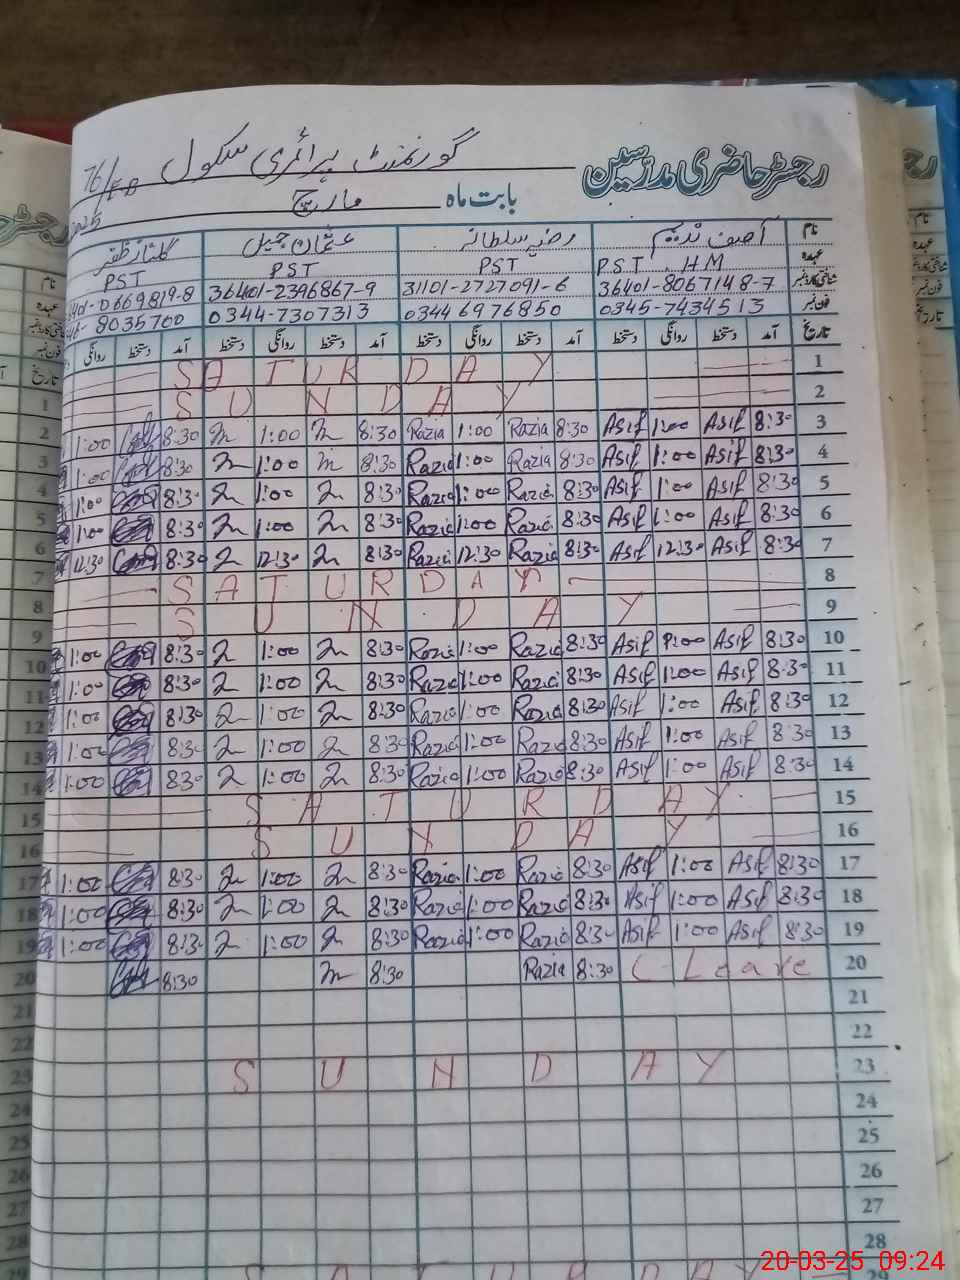 رجسٹر حاضری مدرسین گورنمنٹ پرائمری سکول 76/E.B
بابت ماہ مارچ 2025
نام آصف ندیم رضیہ سلطانہ عثمان جمیل گلناز ظفر
عہدہ PST HM PST PST PST
شناختی کارڈ نمبر 36401-8067148-7 31101-2727091-6 36401-2396867-9 401-0669819-8
فون نمبر 0345-7434513 03446976850 0344-7307313 8035700
تاریخ آمد دستخط روانگی دستخط آمد دستخط روانگی دستخط آمد دستخط روانگی دستخط آمد دستخط روانگی
SATURDAY 1
SUNDAY 2
1:00 8:30 1:00 8:30 Razia 1:00 Razia 8:30 Asif 1:00 Asif 8:30 3
1:00 8:30 1:00 8:30 Razia 1:00 Razia 8:30 Asif 1:00 Asif 8:30 4
1:00 8:30 1:00 8:30 Razia 1:00 Razia 8:30 Asif 1:00 Asif 8:30 5
1:00 8:30 1:00 8:30 Razia 1:00 Razia 8:30 Asif 1:00 Asif 8:30 6
12:30 8:30 12:30 8:30 Razia 12:30 Razia 8:30 Asif 12:30 Asif 8:30 7
SATURDAY 8
SUNDAY 9
1:00 8:30 1:00 8:30 Razia 1:00 Razia 8:30 Asif 1:00 Asif 8:30 10
1:00 8:30 1:00 8:30 Razia 1:00 Razia 8:30 Asif 1:00 Asif 8:30 11
1:00 8:30 1:00 8:30 Razia 1:00 Razia 8:30 Asif 1:00 Asif 8:30 12
1:00 8:30 1:00 8:30 Razia 1:00 Razia 8:30 Asif 1:00 Asif 8:30 13
1:00 8:30 1:00 8:30 Razia 1:00 Razia 8:30 Asif 1:00 Asif 8:30 14
SATURDAY 15
SUNDAY 16
1:00 8:30 1:00 8:30 Razia 1:00 Razia 8:30 Asif 1:00 Asif 8:30 17
1:00 8:30 1:00 8:30 Razia 1:00 Razia 8:30 Asif 1:00 Asif 8:30 18
1:00 8:30 1:00 8:30 Razia 1:00 Razia 8:30 Asif 1:00 Asif 8:30 19
8:30 8:30 Razia 8:30 C Leave 20
21
22
SUNDAY 23
24
25
26
27
28
SATURDAY 29
20-03-25 09:24